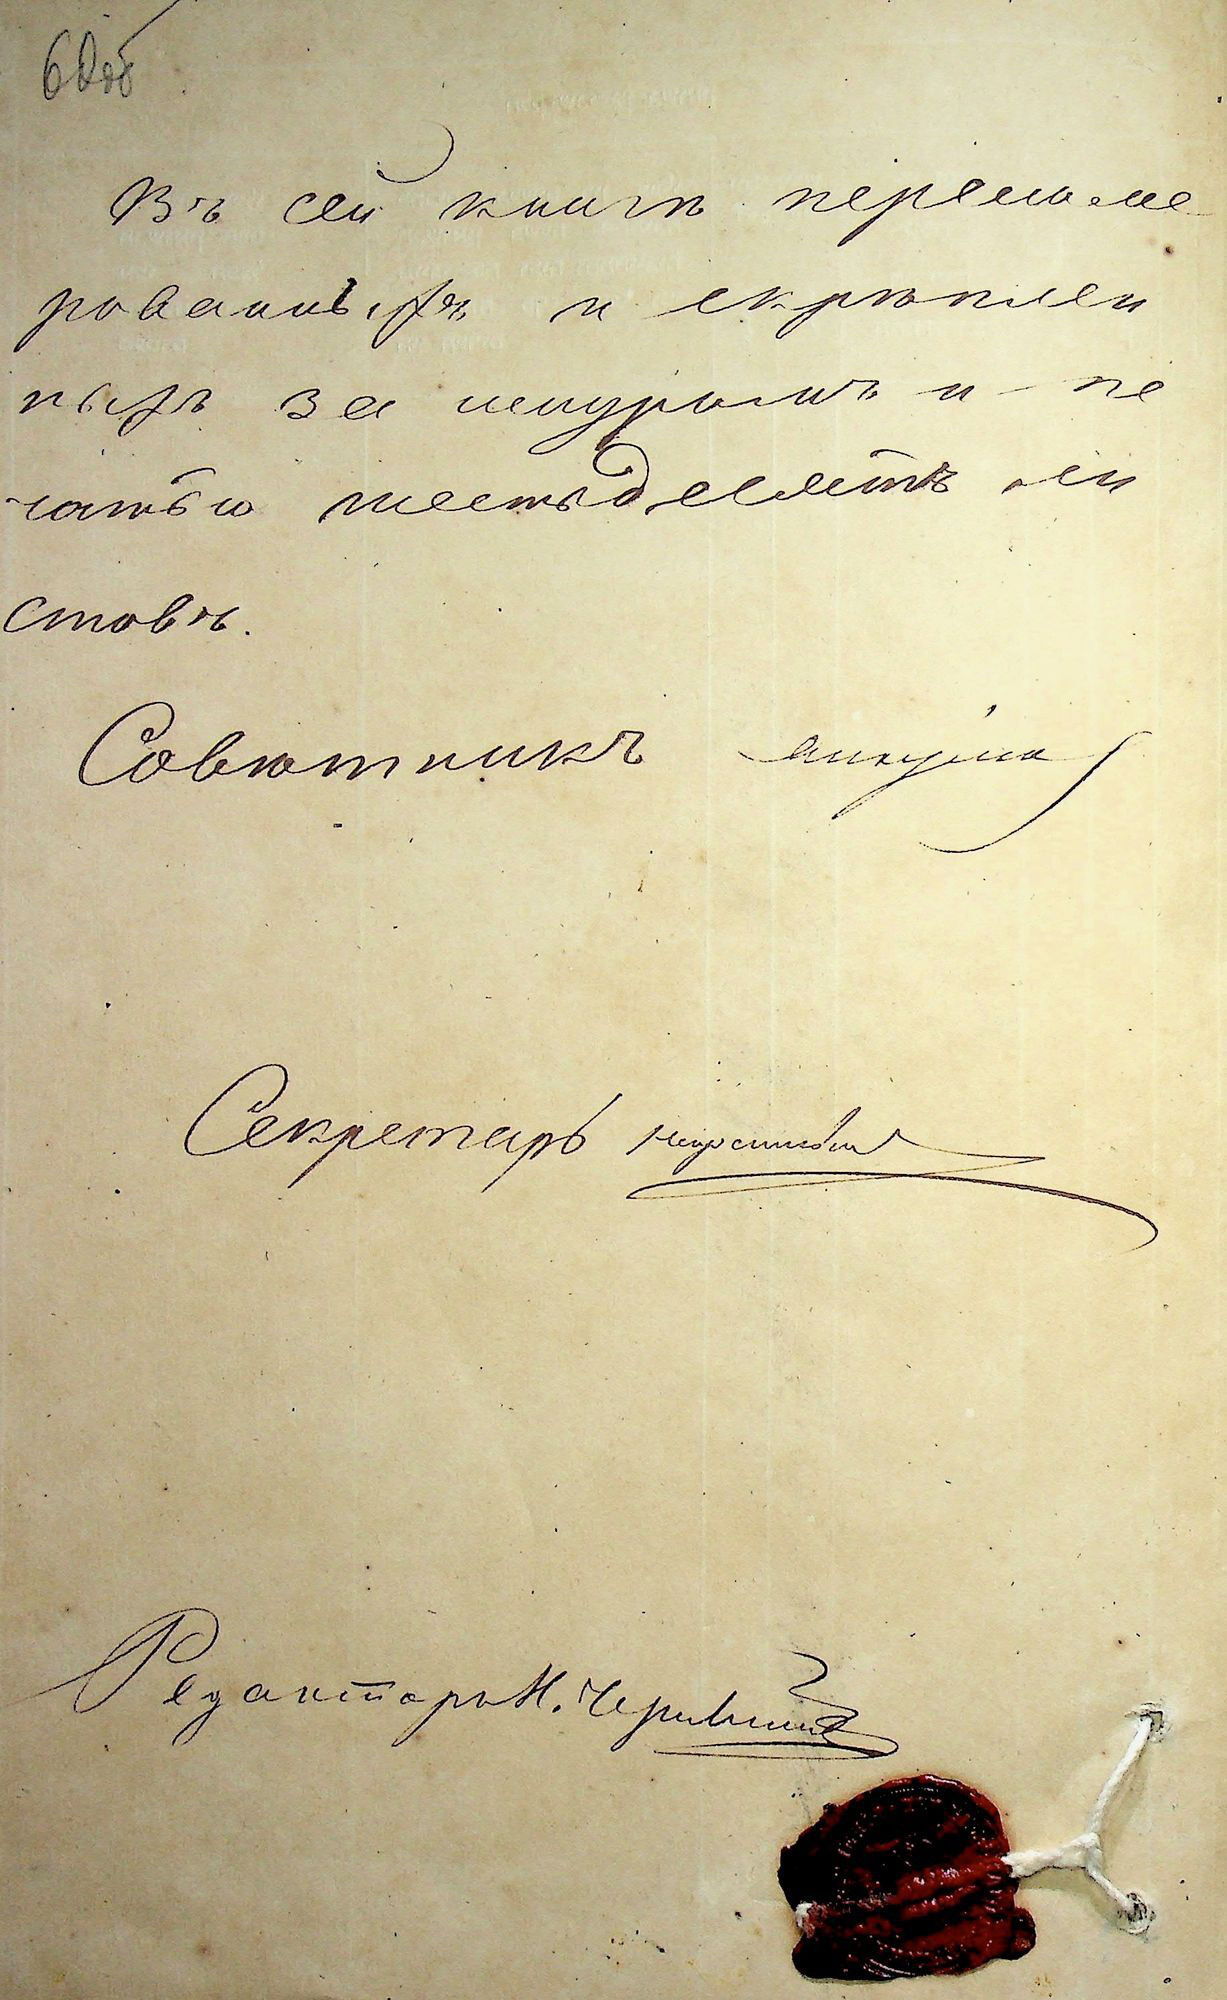 60об
Въ сей книгѣ перенуме
рованныхъ и скрѣплен
ныхъ за шнуромъ и пе
чатью шестьдесятъ ли
стовъ.
Совѣтникъ
Секретарь
Редакторъ Н.